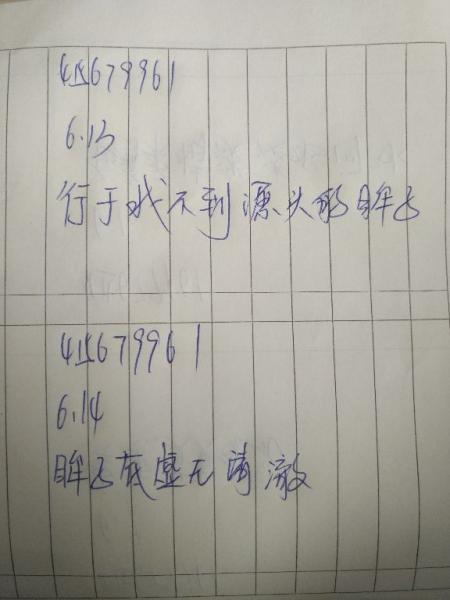 415679961
6.13
行于找不到源头的眸子
415679961
6.14
眸子底虚无清澈